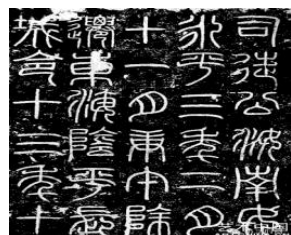 司徒公汝南女
永平三年二月
十一月庚午除
遷東海陰平長
城令十三年十